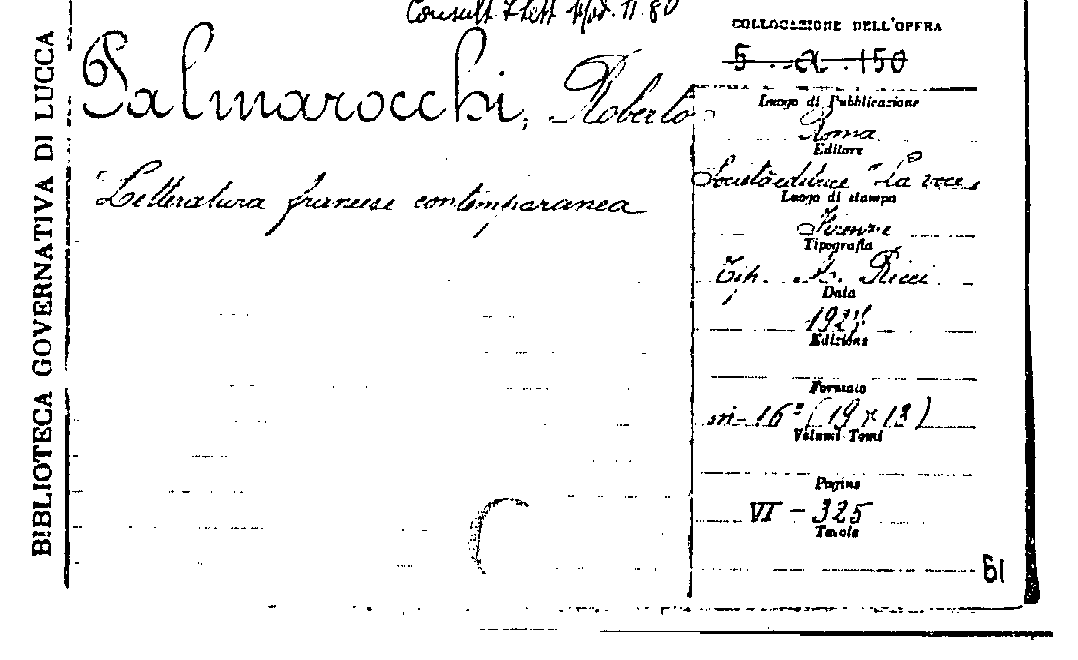 Consult. Lett. Mod. II. 80
COLLOCAZIONE DELL'OPERA
5.-a.-150
Palmarocchi, Roberto
Letteratura francese contemporanea
Luogo di Pubblicazione
Roma
Editore
Società editrice "La voce"
Luogo di stampa
Firenze
Tipografia
Tip. A. Ricci
Data
Edizione
Formato
in-16° (19 x 13)
Volumi Tomi
Pagine
VI - 325
Tavole
61
BIBLIOTECA GOVERNATIVA DI LUCCA